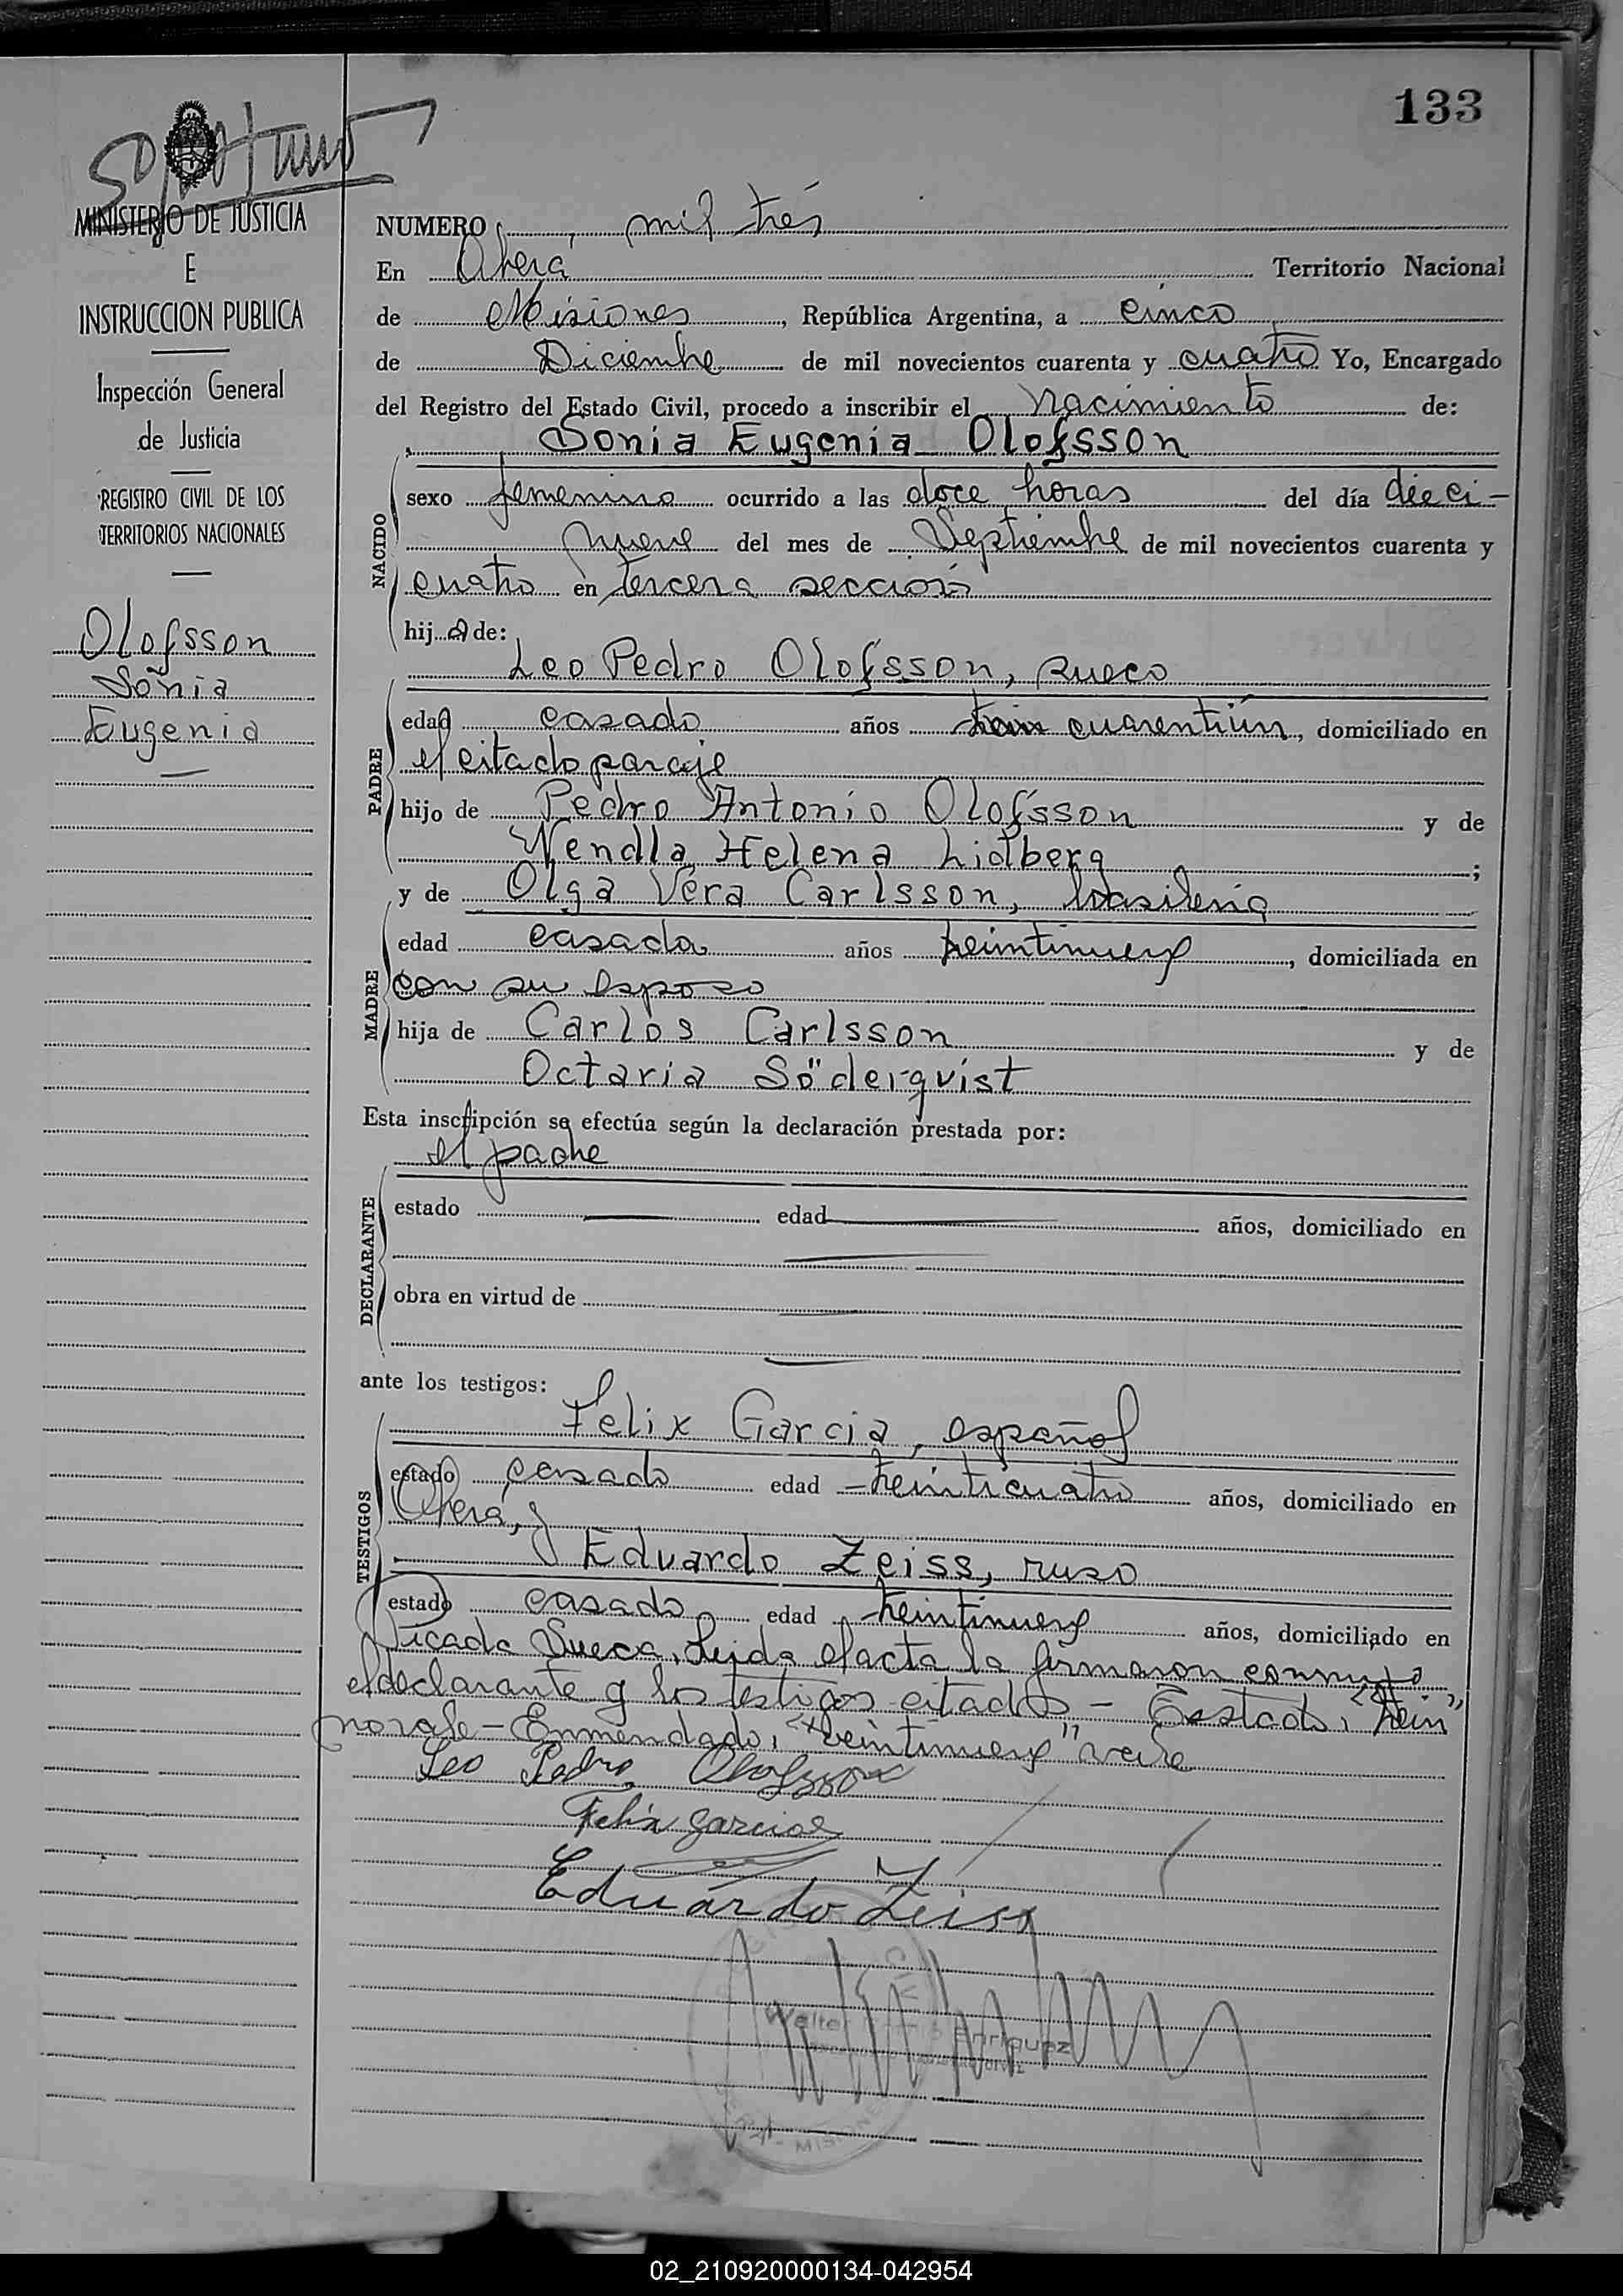 133
MINISTERIO DE JUSTICIA
E
INSTRUCCION PUBLICA
Inspección General
de Justicia
REGISTRO CIVIL DE LOS
TERRITORIOS NACIONALES
Olofsson
Sonia
Eugenia
NUMERO mil trés
En Oberá Territorio Nacional
de Misiones, República Argentina, a cinco
de Diciembre de mil novecientos cuarenta y cuatro Yo, Encargado
del Registro del Estado Civil, procedo a inscribir el nacimiento de:
Sonia Eugenia Olofsson
NACIDO
sexo femenino ocurrido a las doce horas del día dieci-
nueve del mes de Septiembre de mil novecientos cuarenta y
cuatro en tercera sección
hija de:
Leo Pedro Olofsson, sueco
PADRE
edad casado años cuarentiún, domiciliado en
el citado paraje
hijo de Pedro Antonio Olofsson y de
Wendla Helena Lidberg;
y de Olga Vera Carlsson, brasileña
MADRE
edad casada años treintinueve, domiciliada en
con su esposo
hija de Carlos Carlsson y de
Octaria Söderqvist
Esta inscripción se efectúa según la declaración prestada por:
el padre
DECLARANTE
estado edad años, domiciliado en
obra en virtud de
ante los testigos:
Felix Garcia, español
TESTIGOS
estado casado edad treinticuatro años, domiciliado en
Oberá, y
Eduardo Zeiss, ruso
estado casado edad treintinueve años, domiciliado en
Picada Sueca. Leida el acta la firmaron conmigo
el declarante y los testigos citados - Testado: "trein"
no vale - Enmendado: "treintinueve" vale
Leo Pedro Olofsson
Felix Garcia
Eduardo Zeiss
Walter Enriquez
MISIONES
02_210920000134-042954